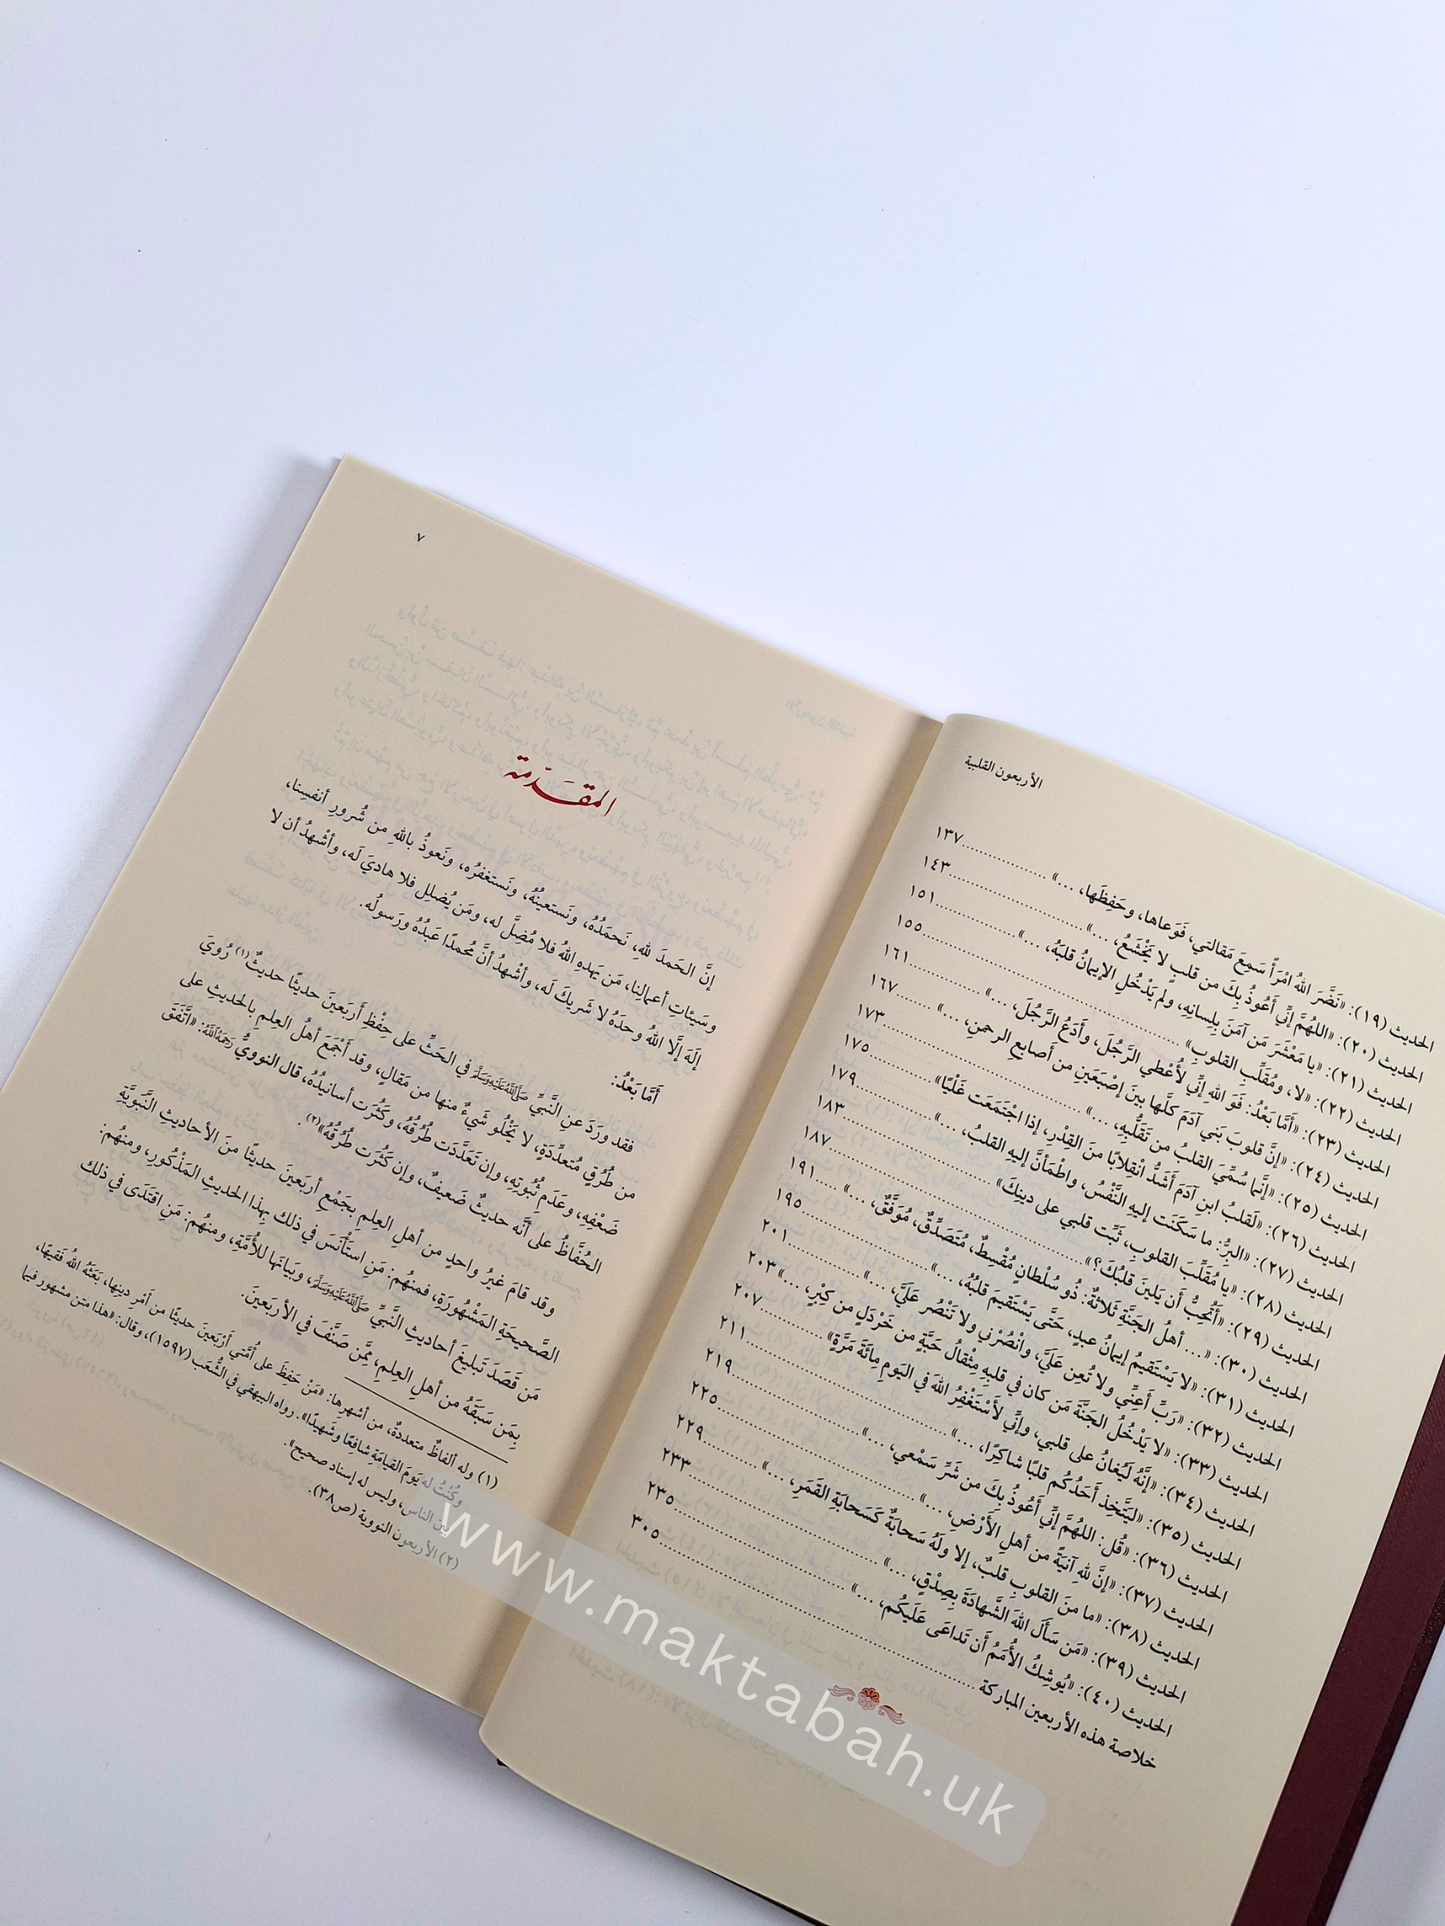 الأربعون القلبية
الحديث (١٩): «نَضَّرَ اللهُ امْرَأً سَمِعَ مَقالتي، فَوَعاها، وحَفِظَها، ...» ١٣٧
الحديث (٢٠): «اللهُمَّ إنِّي أَعُوذُ بِكَ من قلبٍ لا يَخْشَعُ، ...» ١٤٣
الحديث (٢١): «يا مَعْشَرَ مَن آمَنَ بِلِسانِهِ، ولم يَدْخُلِ الإيمانُ قلبَهُ، ...» ١٥١
الحديث (٢٢): «لا، ومُقَلِّبِ القلوبِ» ١٥٥
الحديث (٢٣): «أَمَّا بَعْدُ: فَوَ اللهِ إنِّي لأُعْطي الرَّجُلَ، وأَدَعُ الرَّجُلَ، ...» ١٦١
الحديث (٢٤): «إنَّ قلوبَ بَني آدَمَ كلَّها بينَ إصْبَعَينِ من أصابِعِ الرحمنِ، ...» ١٦٧
الحديث (٢٥): «إنَّما سُمِّيَ القلبُ من تَقَلُّبِهِ، ...» ١٧٣
الحديث (٢٦): «لَقلبُ ابنِ آدَمَ أَشَدُّ انْقِلابًا منَ القِدْرِ، إذا اجْتَمَعَت غَلْيًا» ١٧٥
الحديث (٢٧): «البِرُّ: ما سَكَنَت إليه النَّفْسُ، واطْمَأنَّ إليهِ القلبُ، ...» ١٧٩
الحديث (٢٨): «يا مُقَلِّبَ القلوبِ، ثَبِّت قلبي على دينِكَ» ١٨٣
الحديث (٢٩): «أَتُحِبُّ أن يَلينَ قلبُكَ؟» ١٨٧
الحديث (٣٠): «... أهلُ الجَنَّةِ ثَلاثةٌ: ذُو سُلْطانٍ مُقْسِطٌ، مُتَصَدِّقٌ، مُوَفَّقٌ، ...» ١٩١
الحديث (٣١): «لا يَسْتَقيمُ إيمانُ عبدٍ، حَتَّى يَسْتَقيمَ قلبُهُ، ...» ١٩٥
الحديث (٣٢): «رَبِّ أَعِنِّي ولا تُعِن عَلَيَّ، وانْصُرْني ولا تَنْصُر عَلَيَّ، ...» ٢٠١
الحديث (٣٣): «لا يَدْخُلُ الجَنَّةَ مَن كان في قلبِهِ مِثْقالُ حَبَّةٍ من خَرْدَلٍ من كِبْرٍ، ...» ٢٠٣
الحديث (٣٤): «إنَّهُ لَيُغانُ على قلبي، وإنِّي لأَسْتَغْفِرُ اللهَ في اليَومِ مِائَةَ مَرَّةٍ» ٢٠٧
الحديث (٣٥): «لِيَتَّخِذ أَحَدُكُم قلبًا شاكِرًا، ...» ٢١١
الحديث (٣٦): «قُل: اللهُمَّ إنِّي أَعُوذُ بِكَ من شَرِّ سَمْعي، ...» ٢١٩
الحديث (٣٧): «إنَّ للهِ آنيَةً من أهلِ الأَرْضِ، ...» ٢٢٥
الحديث (٣٨): «ما منَ القلوبِ قلبٌ، إلا ولَهُ سَحابَةٌ كَسَحابَةِ القَمَرِ، ...» ٢٢٩
الحديث (٣٩): «مَن سَأَلَ اللهَ الشَّهادَةَ بِصِدْقٍ، ...» ٢٣٣
الحديث (٤٠): «يُوشِكُ الأُمَمُ أَن تَداعَى عَلَيكُم، ...» ٢٣٥
خلاصة هذه الأربعين المباركة ٣٠٥
٧
المقدّمة
إنَّ الحَمدَ للهِ، نَحمَدُهُ، ونَستعينُهُ، ونَستغفرُه، ونَعوذُ باللهِ من شُرورِ أنفسِنا،
وسَيئاتِ أعمالِنا، مَن يَهدِهِ اللهُ فلا مُضِلَّ له، ومَن يُضلِل فلا هاديَ لَه، وأشْهدُ أن لا
إلَهَ إلَّا اللهُ وحدَهُ لا شَريكَ لَه، وأشْهدُ أنَّ مُحمدًا عَبدُهُ ورَسولُه.
أمَّا بَعْدُ:
فقد ورَدَ عنِ النَّبيِّ ﷺ في الحَثِّ على حِفْظِ أَربَعينَ حديثًا حديثٌ(١) رُويَ
من طُرُقٍ مُتعدِّدَةٍ، لا يَخْلُو شَيءٌ منها من مَقالٍ، وقد أجْمَعَ أهلُ العِلمِ بالحَديثِ على
ضَعْفِهِ، وعَدَمِ ثُبُوتِه، وإن تَعَدَّدَت طُرُقُهُ، وكَثُرَت أسانيدُهُ، قال النوويُّ رَحِمَهُ اللَّهُ: «اتَّفَقَ
الحُفَّاظُ على أَنَّه حديثٌ ضَعيفٌ، وإن كَثُرَت طُرُقُهُ»(٢).
وقد قامَ غيرُ واحدٍ من أهلِ العِلمِ بجَمْعِ أربَعينَ حديثًا منَ الأحاديثِ النَّبَويَّةِ
الصَّحيحَةِ المَشْهُورَةِ، فمنهُم: مَنِ استأْنَسَ في ذلك بهذا الحَديثِ المَذْكُورِ، ومنهُم:
مَن قَصَدَ تَبليغَ أحاديثِ النَّبيِّ ﷺ، وبَيانَها للأُمَّةِ، ومنهُم: مَنِ اقتَدَى في ذلك
بِمَن سَبَقَهُ من أهلِ العِلمِ، مِمَّن صَنَّفَ في الأربَعينَ.
(١) وله ألفاظٌ متعددةٌ، من أشهرِها: «مَنْ حَفِظَ على أُمَّتي أرْبَعينَ حديثًا من أمْرِ دينِها، بَعَثَهُ اللهُ فقيهًا،
وكُنْتُ له يَومَ القيامَةِ شافِعًا وشَهيدًا». رواه البيهقي في الشُّعَب (١٥٩٧)، وقال: «هذا متن مشهور فيما
بين الناس، وليس له إسناد صحيح».
(٢) الأربعون النووية (ص٣٨).
www.maktabah.uk